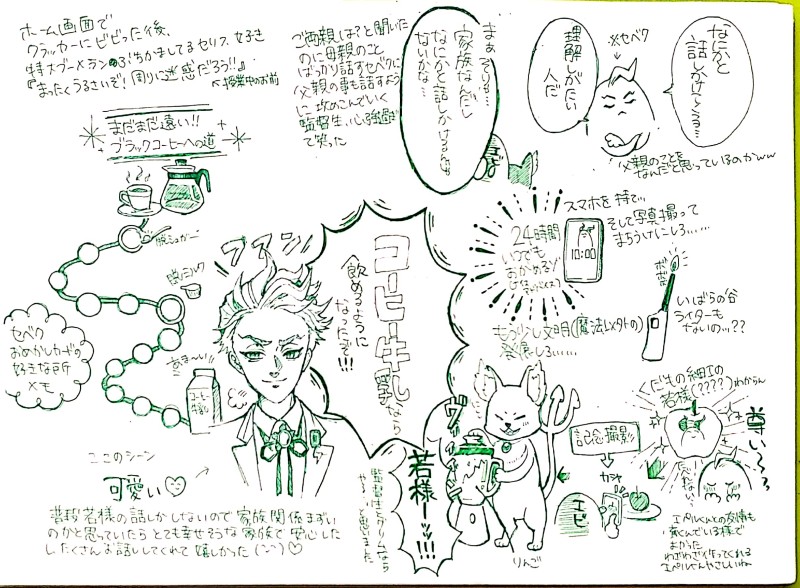 ホーム画面で
クラッカーにビビった後、
特大ブーメランぶちかましてるセリフ、女子き
『まったくうるさいぞ!周りに迷惑だろう!!』
↖授業中のお前
まだまだ遠い!!
ブラックコーヒーへの道
脱シュガー
脱ミルク
あまーい!!
コーヒー牛乳
セベク
おめかしカードの
好きな所
メモ
ご両親は?と聞いた
のに母親のこと
ばっかり話すセベクに
父親の事も話すよう
に攻めこんでいく
監督生、心強過ぎ
て笑った
まぁそりゃ…
家族なんだし
なにかと話しかけるんじゃ
ないかな…
エビ
※セベク
理解しがたい
人だ
なにかと
話しかけてくる…
父親のことを
なんだと思っているのかww
スマホを持て…
そして写真撮って
まろうけにしろ……
24時間
いつでも
おかめるゾ
10:00
ボボボ
いばらの谷
ライターも
ないの…??
もう少し文明(魔法以外の)
発展しろ……
ブイン
コーヒー牛乳なら
飲めるように
なったぞ!!!
ここのシーン
可愛い♡
普段若様の話しかしないので家族関係まずい
のかと思っていたらとても幸せそうな家族で安心した
したくさんお話ししてくれて嬉しかった(^-^)♡
若様ーッ!!!
監督生とグリムなら
やると思いました
ヴィーン
りんご
記念撮影
カシャ
エビ
くだもの細工の
若様(????)わからん
尊い〜〜
エペルくんとの友情も
育くんでいる様で
よかった
わざわざ作ってくれる
エペルくんやさしいね